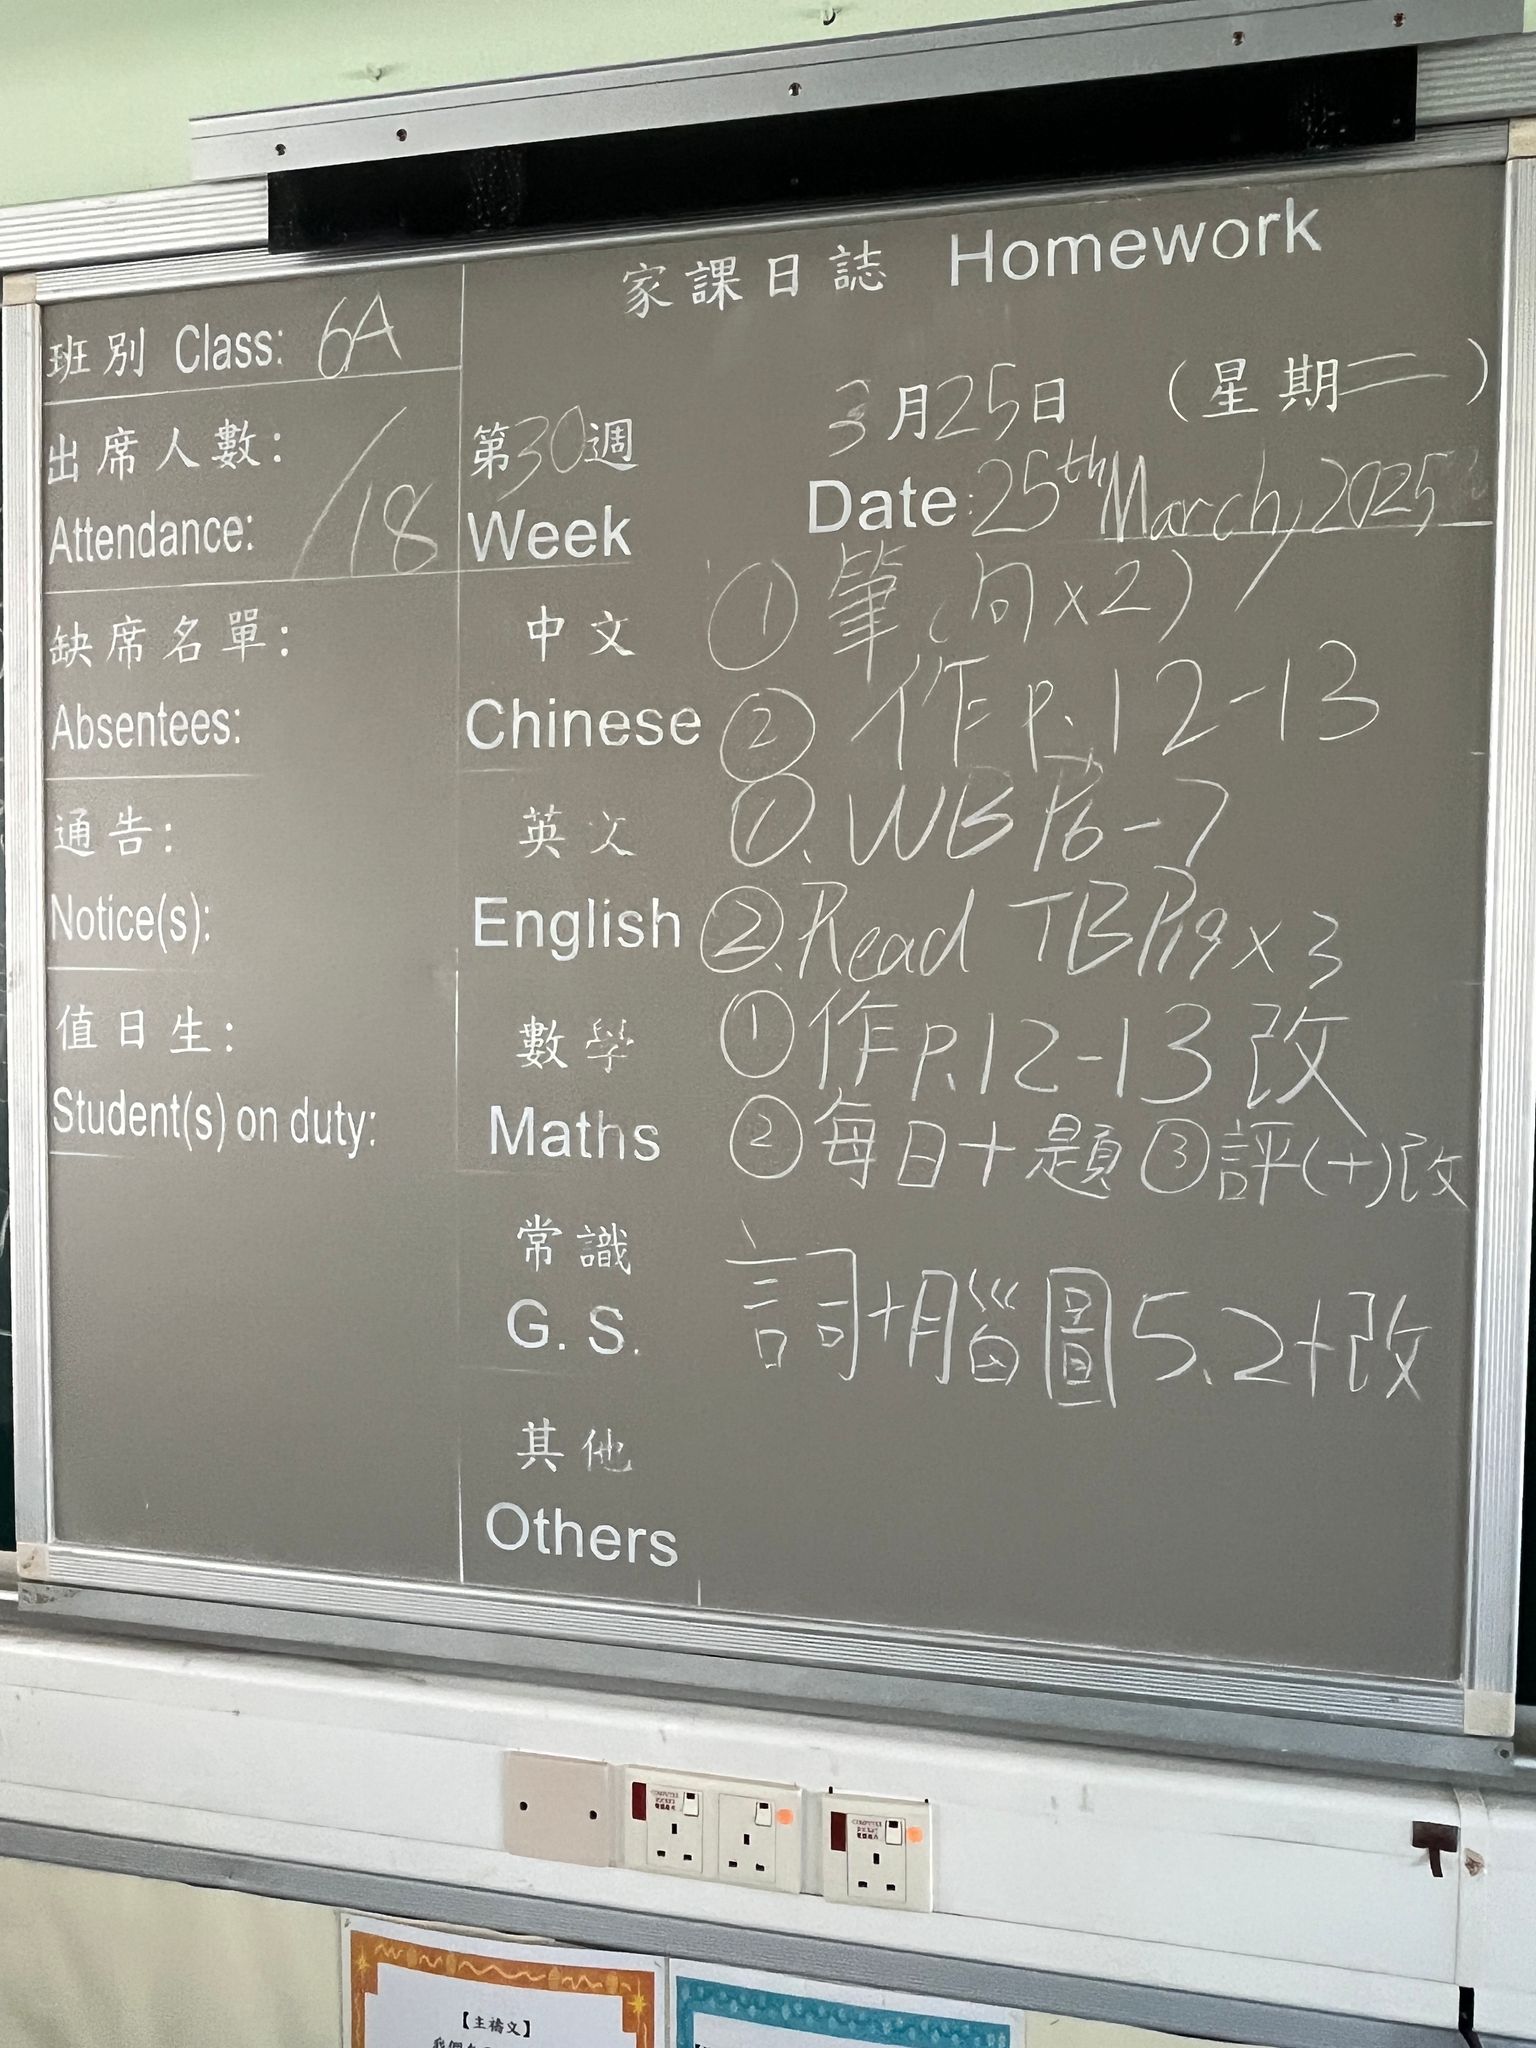 家課日誌 Homework
班別 Class: 6A
出席人數:
Attendance: /18
缺席名單:
Absentees:
通告:
Notice(s):
值日生:
Student(s) on duty:
第30週
Week
3月25日 (星期二)
Date: 25th March, 2025
中文
Chinese
① 筆(句x2)
② 作 P.12-13
英文
English
①. WB P6-7
②. Read TB P19 x 3
數學
Maths
① 作 P.12-13 改
② 每日十題 ③ 評(十)改
常識
G. S.
詞+腦圖5.2+改
其他
Others
【主禱文】